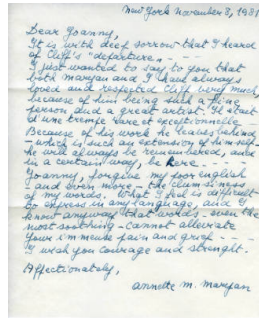 New York November 3, 1981
Dear Joanny,
It is with deep sorrow that I heard
of Cliff's "departure - - - -
I just wanted to say to you that
both Maryan and I have always
loved and respected Cliff very much,
because of him being such a fine
person and a great artist. Il était
d'une trempe rare et exceptionnelle -
Because of his work he leaves behind
- which is such an extension of himself -
he will always be remembered, and
in a certain way, be here.
Joanny, forgive my poor english
- and even more - the clumsiness
of my words. What I feel is difficult
to express in any language, and I
know anyway that words - even the
most soothing - cannot alleviate
your immense pain and grief - - -
I wish you courage and strenght.
Affectionately,
Annette M. Maryan